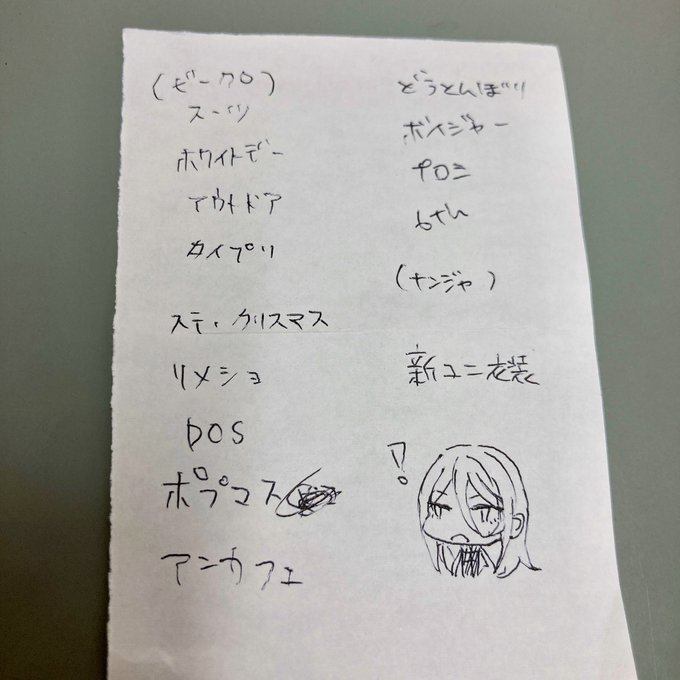 (ビークロ)
スーツ
ホワイトデー
アウトドア
カイプリ
ステ・クリスマス
リメショ
DOS
ポプマス
アニカフェ
どうとんぼり
ボイジャー
プロミ
(ナンジャ)
新ユニ衣装
!